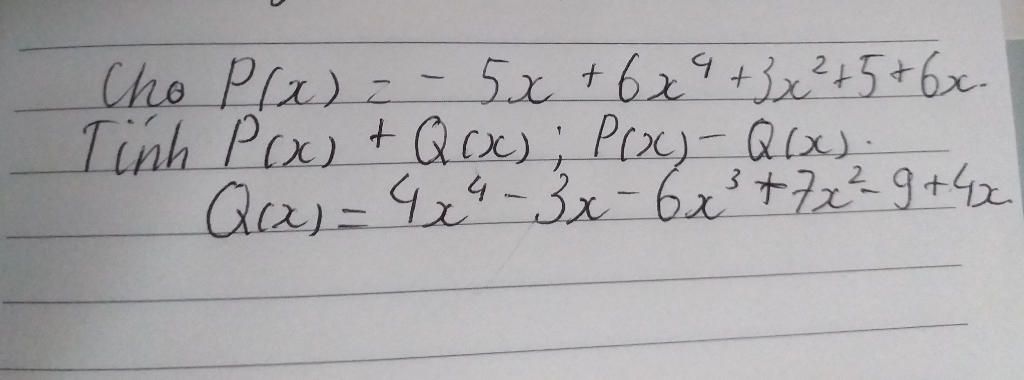 Cho P(x) = - 5x + 6x⁴ + 3x² + 5 + 6x.
Tính P(x) + Q(x) ; P(x) - Q(x).
Q(x) = 4x⁴ - 3x - 6x³ + 7x² - 9 + 4x